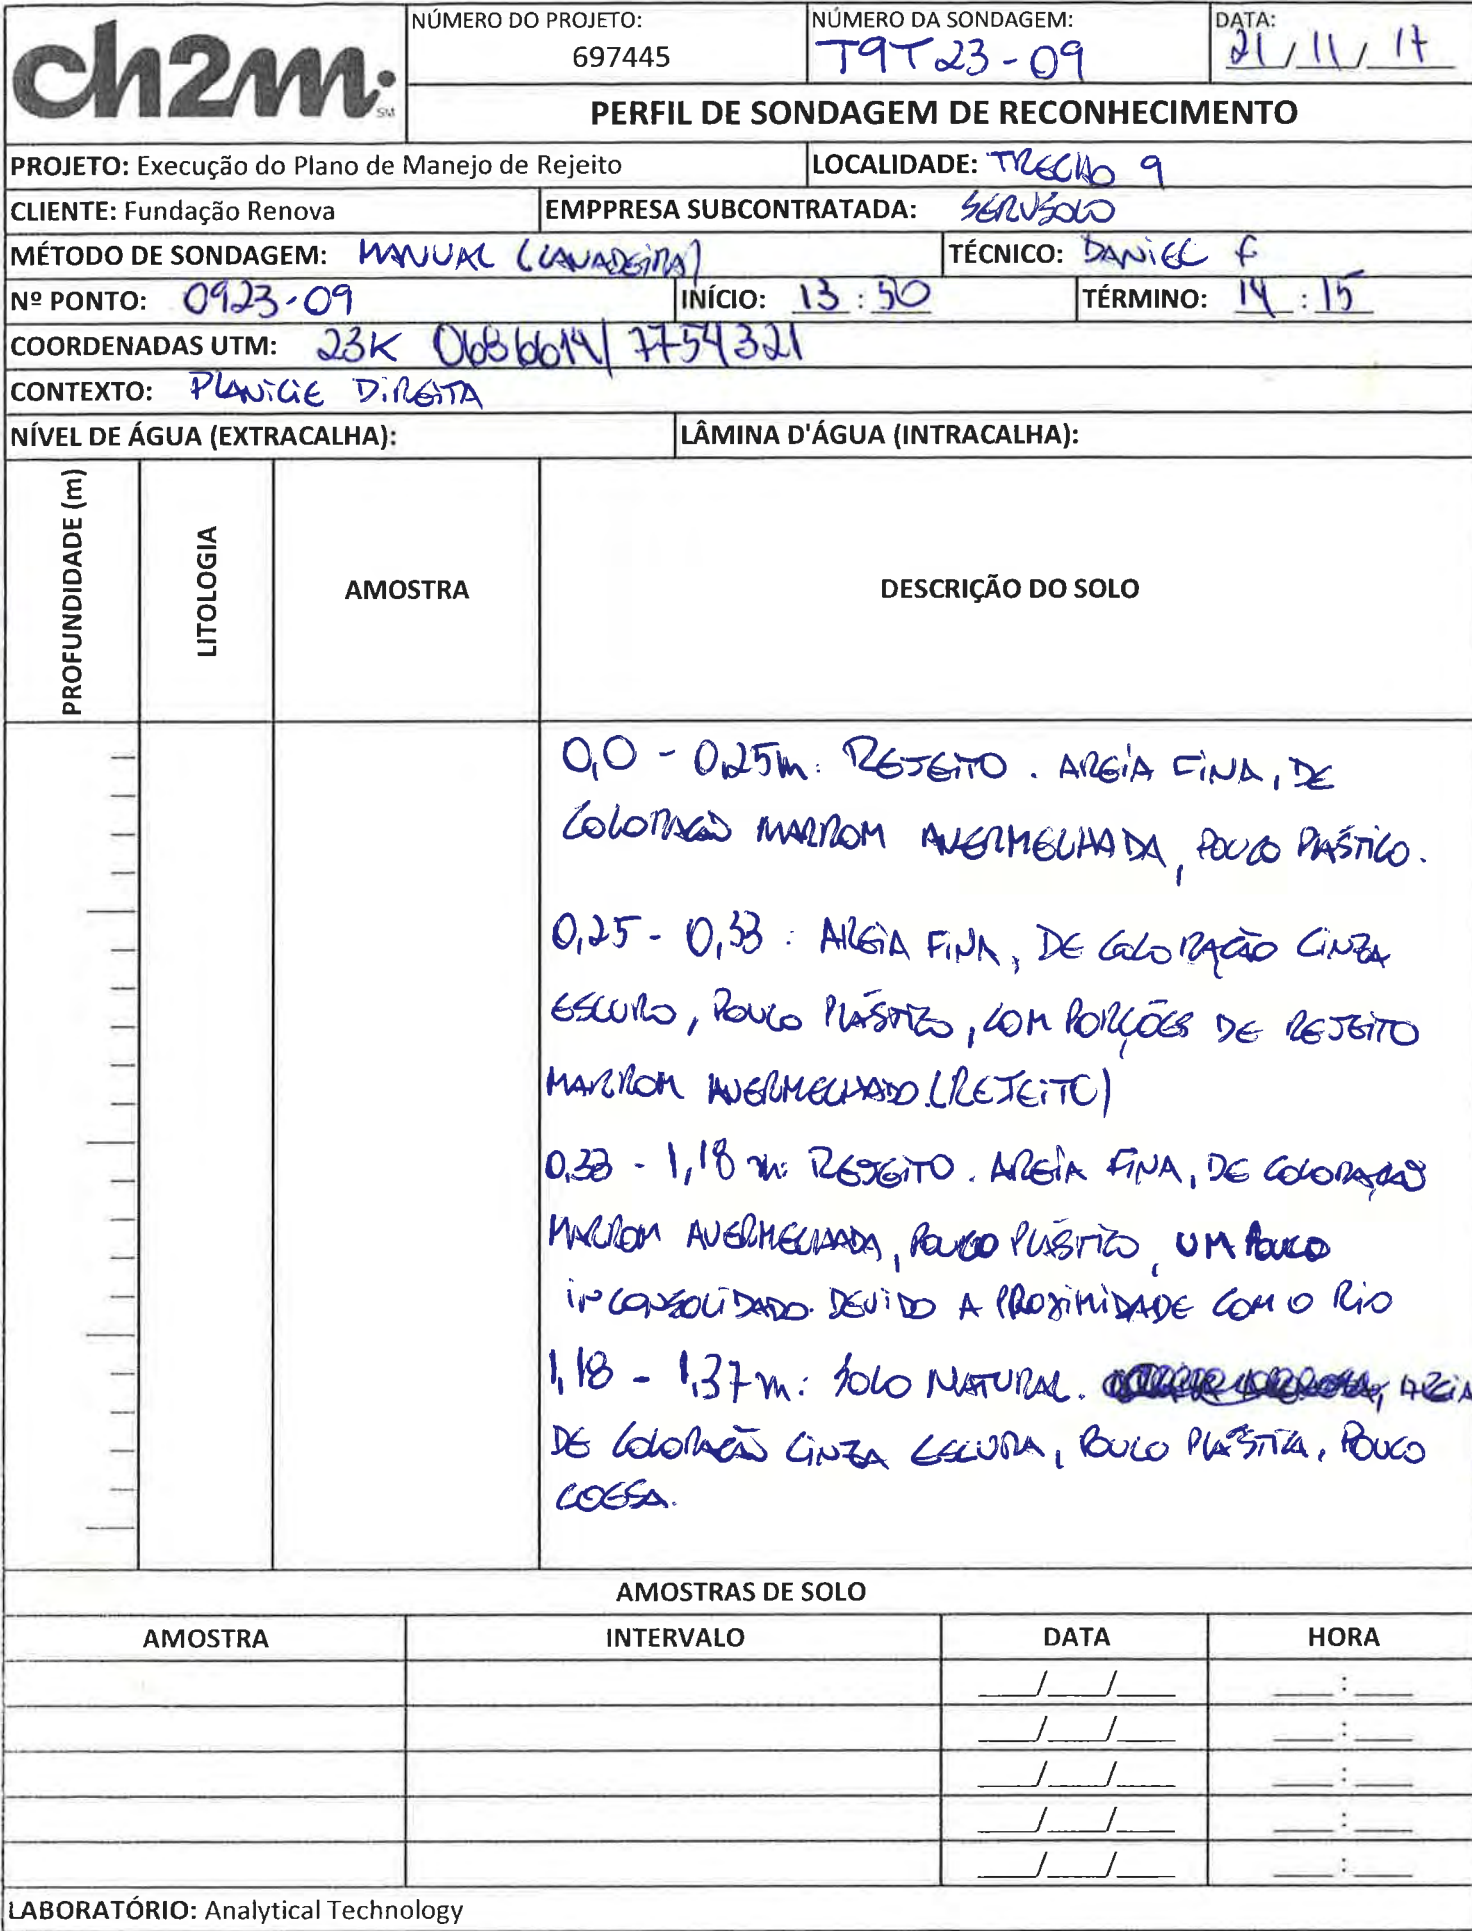 ch2m. SM
NÚMERO DO PROJETO:
697445
NÚMERO DA SONDAGEM:
T9T23-09
DATA:
21/11/17
PERFIL DE SONDAGEM DE RECONHECIMENTO
PROJETO: Execução do Plano de Manejo de Rejeito
LOCALIDADE: TRECHO 9
CLIENTE: Fundação Renova
EMPPRESA SUBCONTRATADA: SERVSOLO
MÉTODO DE SONDAGEM: MANUAL (CAVADEIRA)
TÉCNICO: DANIEL F
Nº PONTO: 0923-09
INÍCIO: 13:50
TÉRMINO: 14:15
COORDENADAS UTM: 23K 0686614/7754321
CONTEXTO: PLANICIE DIREITA
NÍVEL DE ÁGUA (EXTRACALHA):
LÂMINA D'ÁGUA (INTRACALHA):
PROFUNDIDADE (m)
LITOLOGIA
AMOSTRA
DESCRIÇÃO DO SOLO
0,0 - 0,25m: REJEITO. AREIA FINA, DE
COLORAÇÃO MARROM AVERMELHADA, POUCO PLÁSTICO.
0,25 - 0,33: AREIA FINA, DE COLORAÇÃO CINZA
ESCURO, POUCO PLÁSTICO, COM PORÇÕES DE REJEITO
MARROM AVERMELHADO. (REJEITO)
0,33 - 1,18 m: REJEITO. AREIA FINA, DE COLORAÇÃO
MARROM AVERMELHADA, POUCO PLÁSTICO, UM POUCO
INCONSOLIDADO DEVIDO A PROXIMIDADE COM O RIO
1,18 - 1,37m: SOLO NATURAL. AREIA
DE COLORAÇÃO CINZA ESCURA, POUCO PLÁSTICA, POUCO
COESA.
AMOSTRAS DE SOLO
AMOSTRA INTERVALO DATA HORA
___/___/___ ___:___
___/___/___ ___:___
___/___/___ ___:___
___/___/___ ___:___
___/___/___ ___:___
LABORATÓRIO: Analytical Technology